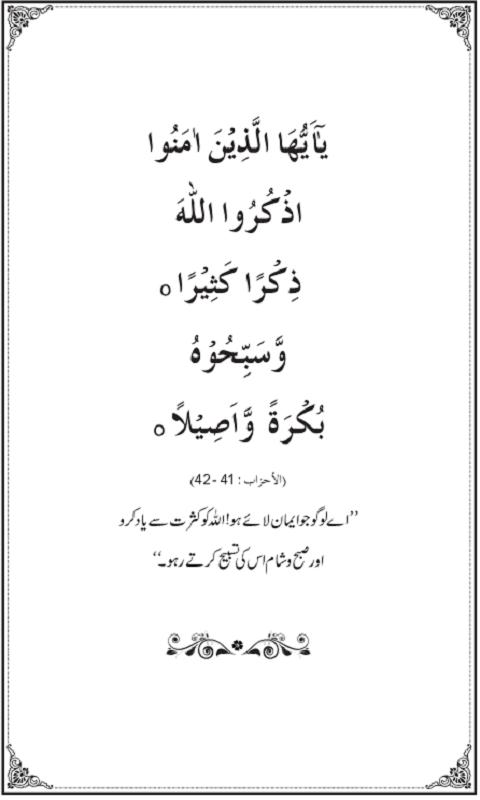 يٰٓاَيُّهَا الَّذِيْنَ اٰمَنُوا
اذْكُرُوا اللّٰهَ
ذِكْرًا كَثِيْرًا ○
وَّسَبِّحُوْهُ
بُكْرَةً وَّاَصِيْلًا ○
(الأحزاب : 41 - 42)
’’اے لوگو جو ایمان لائے ہو! اللہ کو کثرت سے یاد کرو
اور صبح و شام اس کی تسبیح کرتے رہو۔‘‘